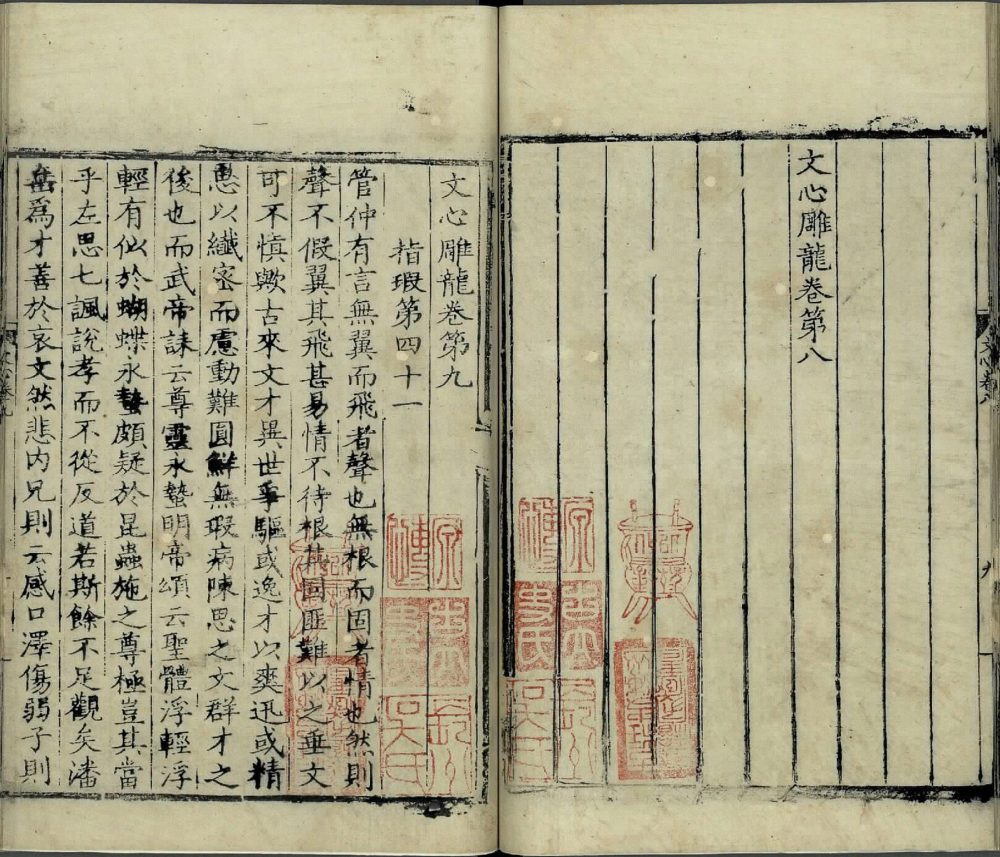 文心雕龍卷第八
文心雕龍卷第九
指瑕第四十一
管仲有言無翼而飛者聲也無根而固者情也然則
聲不假翼其飛甚易情不待根其固匪難以之垂文
可不慎歟古來文才異世爭驅或逸才以爽迅或精
思以纖密而慮動難圓鮮無瑕病陳思之文群才之
後也而武帝誄云尊靈永蟄明帝頌云聖體浮輕浮
輕有似於蝴蝶永蟄頗疑於昆蟲施之尊極豈其當
乎左思七諷說孝而不從反道若斯餘不足觀矣潘
岳爲才善於哀文然悲内兄則云感口澤傷弱子則